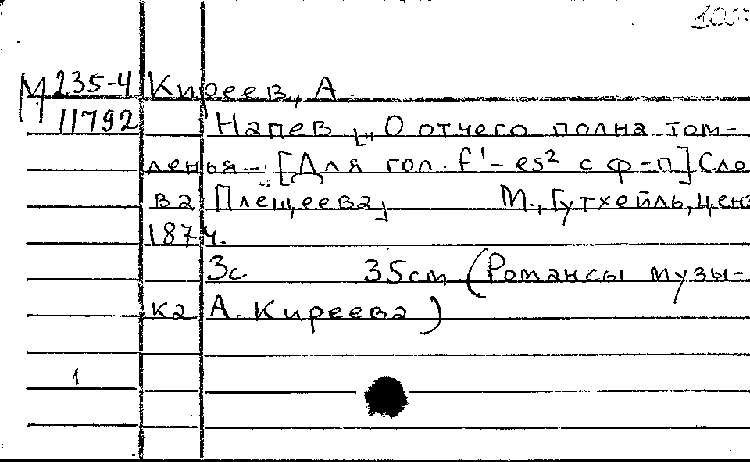 М 235-4 Киреев, А
11792 Напев „О отчего полна том-
ленья – [Для гол. f¹ – es² с ф-п] Сло
ва Плещеева] М., Гутхейль, ценз
1874.
3с. 35см (Романсы музы-
ка А. Киреева)
1